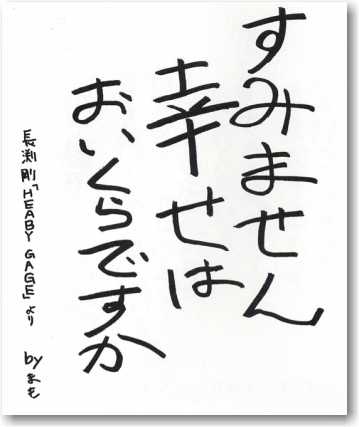 すみません
幸せは
おいくらですか
長渕剛「HEABY GAGE」より
by まも